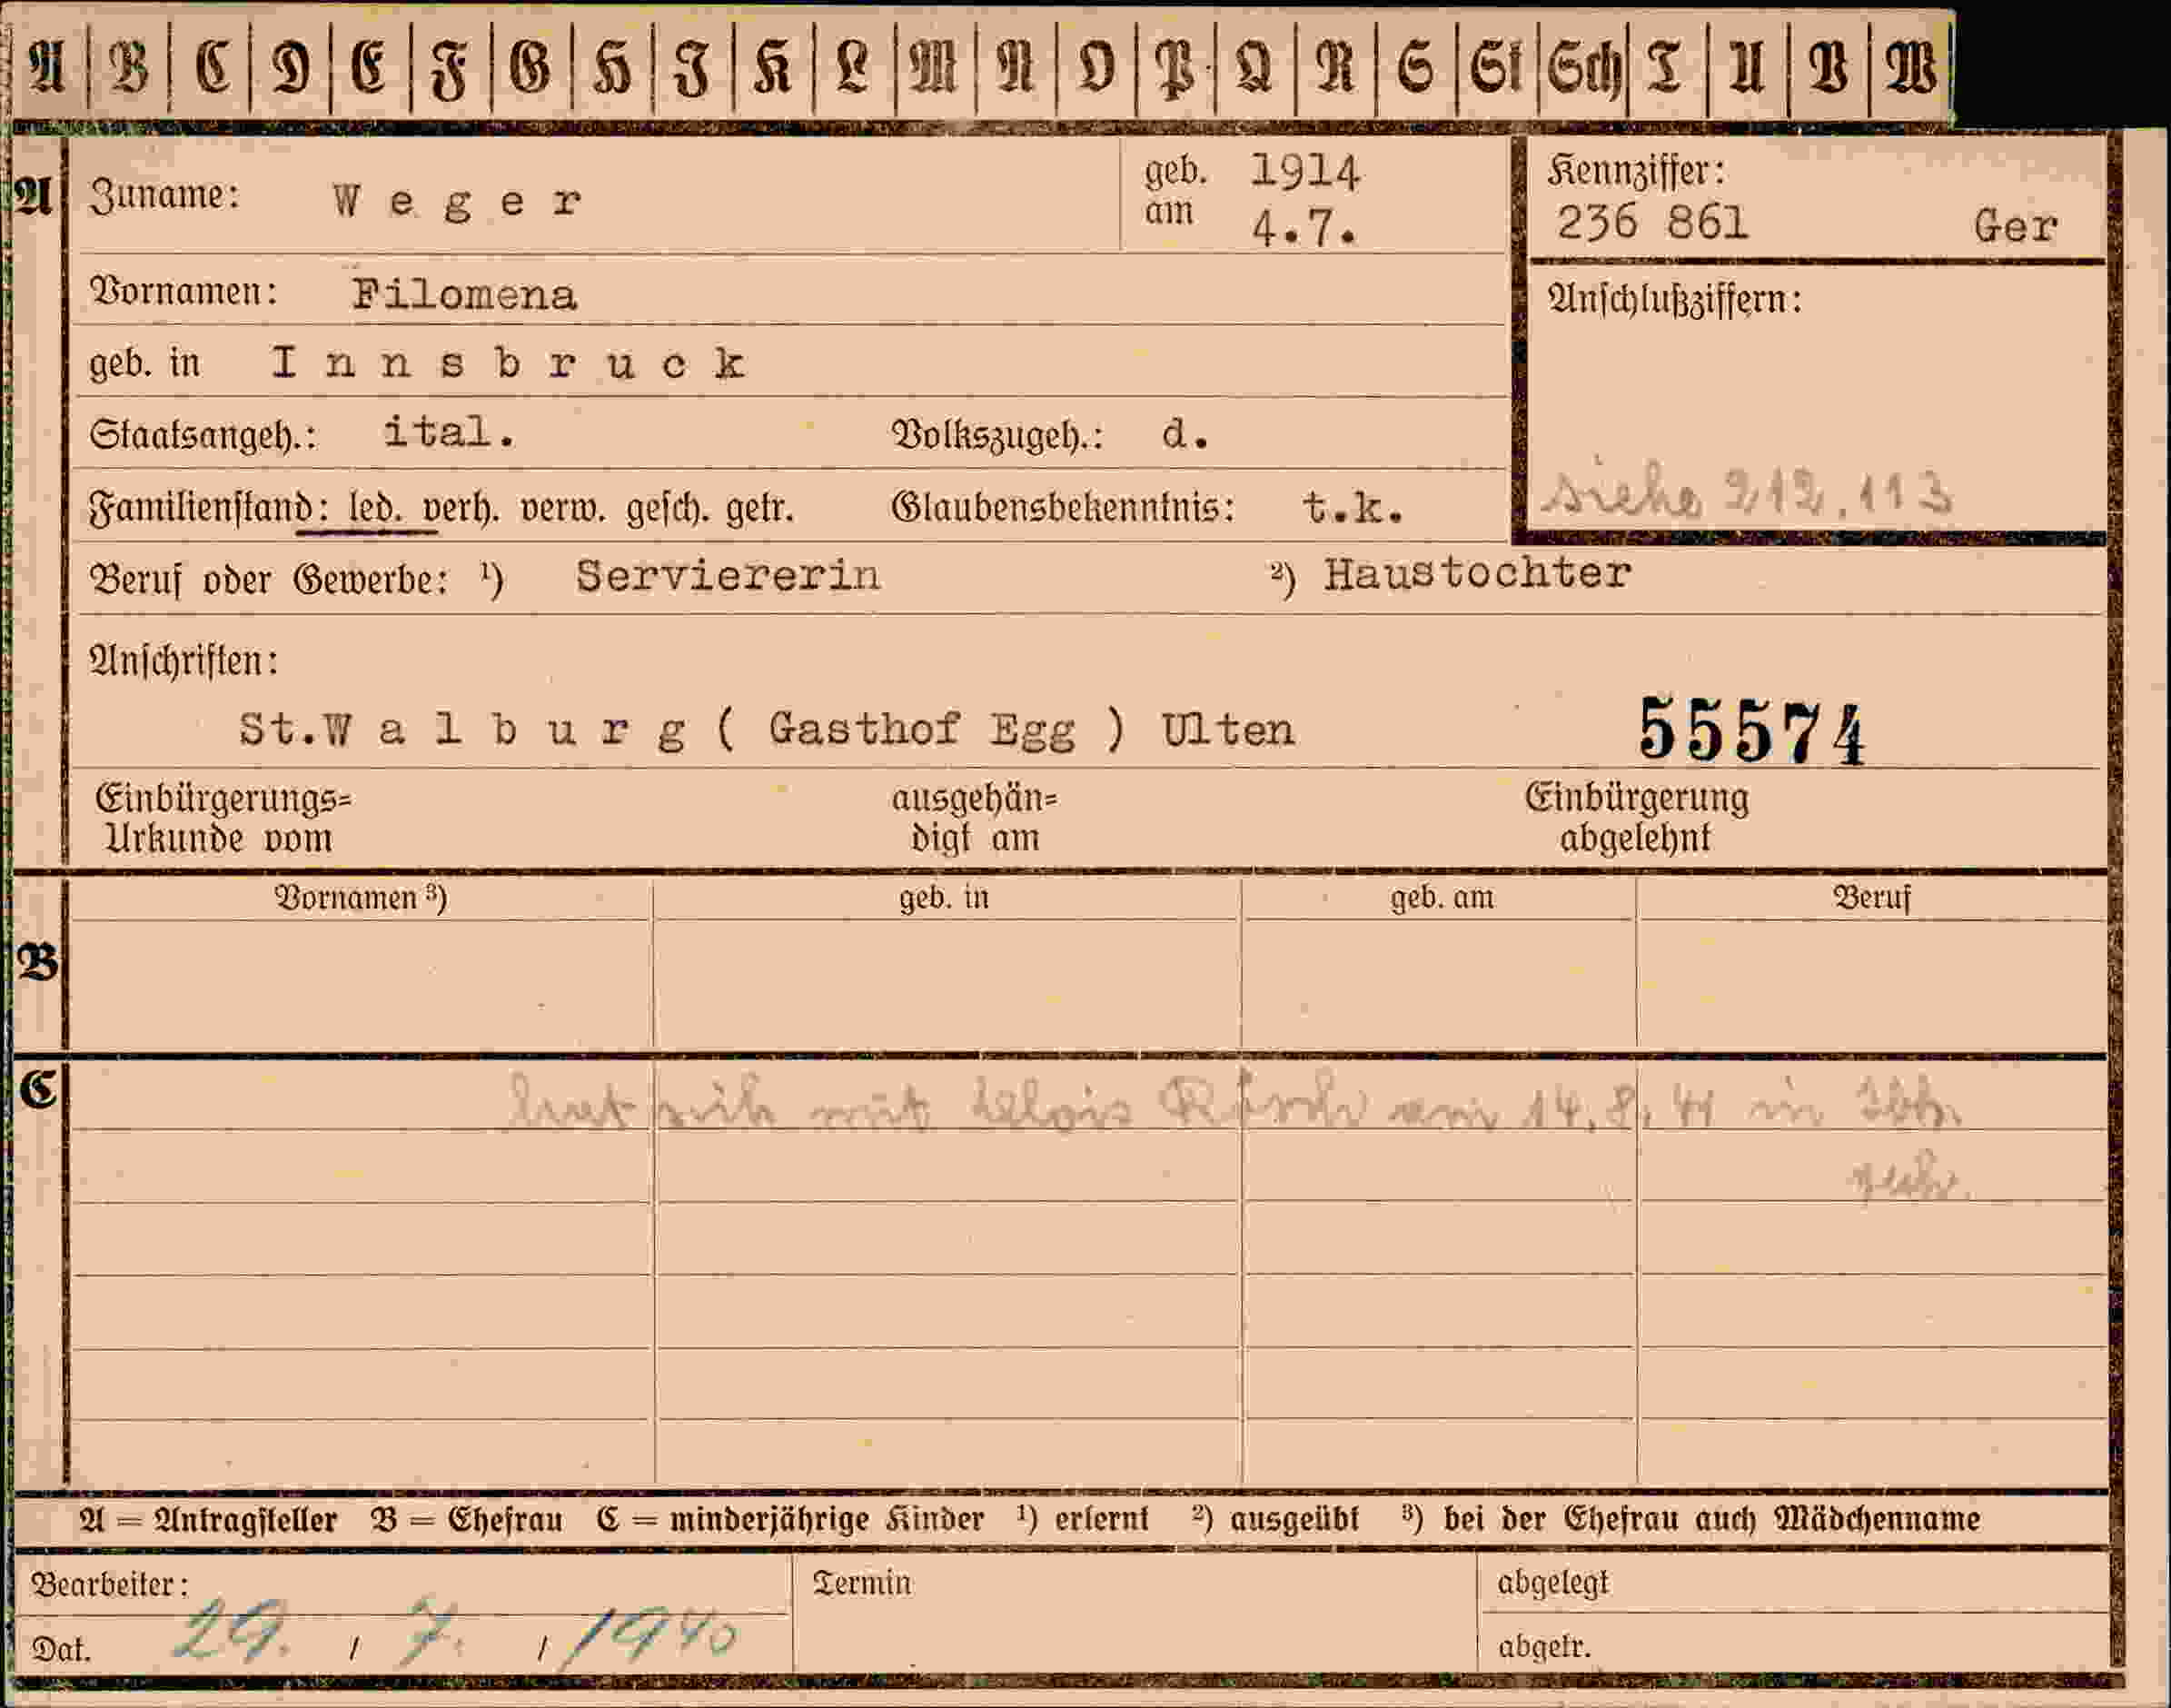 A B C D E F G H I K L M N O P Q R S St Sch T U V W
A Zuname: Weger geb. am 1914 4.7. Kennziffer: 236 861 Ger
Vornamen: Filomena Anschlußziffern:
geb. in Innsbruck
Staatsangeh.: ital. Volkszugeh.: d.
Familienstand: led. verh. verw. gesch. getr. Glaubensbekenntnis: t.k. siehe 212.113
Beruf oder Gewerbe: ¹) Serviererin ²) Haustochter
Anschriften:
St.Walburg ( Gasthof Egg ) Ulten 55574
Einbürgerungs= ausgehän= Einbürgerung
Urkunde vom digt am abgelehnt
Vornamen ³) geb. in geb. am Beruf
B
C hat sich mit Alois am 14.8.41 in Ibk.
A = Antragsteller B = Ehefrau C = minderjährige Kinder ¹) erlernt ²) ausgeübt ³) bei der Ehefrau auch Mädchenname
Bearbeiter: Termin abgelegt
Dat. 29. / 7. / 1940 abgetr.